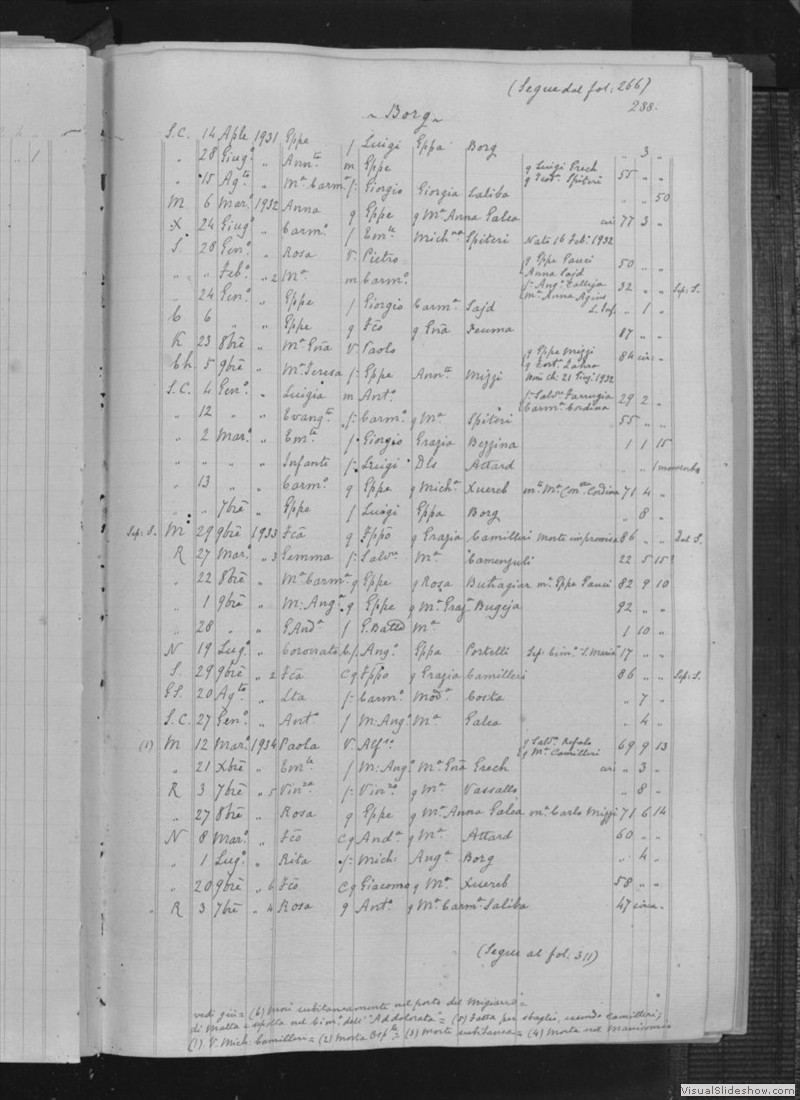 (Segue dal fol: 266)
288.
~ Borg ~
S.C. 14 Aple 1931 Gppe f Luigi Gppa Borg " 3 "
" 28 Giug° " Annta m Gppe g Luigi Grech g Spiteri 55 " "
" 15 Agto " Ma Carma f: Giorgio Giorgia Saliba " " 50
M 6 Mar° 1932 Anna g Gppe g Ma Anna Galea 77 3 "
X 24 Giug° " Carm° f Emle Spiteri Nato 16 Feb° 1932
S. 28 Gen° " Rosa V. Pietro g Gppe Pauci Anna Sajd 50 " "
" " Feb° " 2 Ma m Carm° f: Ang° Zalleja Ma Anna Agius 32 " " Sep: S.
" 24 Gen° " Gppe f Giorgio Carma Sajd " 1 "
C 6 " " Gppe g Fco g Gna 87 " "
K 23 8bre " Ma Gna V. Paolo g Gppe Mizzi 84
Ch. 5 9bre " Ma Teresa f: Gppe Annta Mizzi 21 Giug. 1932
S.C. 4 Gen° " Luigia m Ant° f: Salvre Farrugia Carma Cordina 29 2 "
" 12 " " Evangta f: Carm° g Ma Spiteri 55 " "
" 2 Mar° " Emla f: Giorgio Grazia Bezzina 1 1 15
" " " " Infante f: Luigi Dls Attard " " 1 momento
" 13 " " Carm° g Gppe g Micha Xuereb Cordina 71 4 "
" " 7bre " Gppe f Luigi Gppa Borg " 8 "
Sep: S. M. 29 9bre 1933 Fca g Fppo g Grazia Camilleri morta improvisa 86 " " Del S.
R 27 Mar° " 3 Gemma f: Salvre Ma Camenzuli 22 5 15
" 22 8bre " Ma Carma g Gppe g Rosa Buttagiar ma Gppe Pauci 82 9 10
" 1 9bre " M: Anga g Gppe g Ma Graza Bugeja 92 " "
" 28 " " G. Anda f G. Batta Ma 1 10 "
N 19 Lug° " Coronato C f. Ang° Gppa Portelli Sep. Cim° S. Maria 17 " "
S. 29 9bre " 2 Fca C g Fppo g Grazia Camilleri 86 " " Sep: S.
GS. 20 Agto " Lta f: Carm° Costa " 7 "
S.C. 27 Gen° " Ant° f M: Ang° Ma Galea " 4 "
(1) M 12 Mar° 1934 Paola V. Alfso g Salvre Refalo g Ma Camilleri 69 9 13
" 21 Xbre " Emle f M: Ang° Ma Gna Grech " 3 "
R 3 7bre " 5 Vinza f: Vinzo g Ma Vassallo " 8 "
" 27 8bre " Rosa g Gppe g Ma Anna Galea ma Carlo Mizzi 71 6 14
N 8 Mar° " Fco C g Anda g Ma Attard 60 " "
" 1 Lug° " Rita f: Mich: Anga Borg " 4 "
" 20 9bre " 6 Fco C g Giacomo g Ma Xuereb 58 " "
R 3 7bre " 4 Rosa g Ant° g Ma Carma Saliba 47 circa
(Segue al fol: 311)
vedi giù = (6) Morì subitaneamente nel porto del Migiarro =
di Malta e sepolta nel Cim° dell' "Addolorata" = (5) Fatta per sbaglio, essendo Camilleri;
(1) V. Mich: Camilleri = (2) Morta = (3) Morte subitanea = (4) Morta nel Manicomio
VisualSlideshow.com